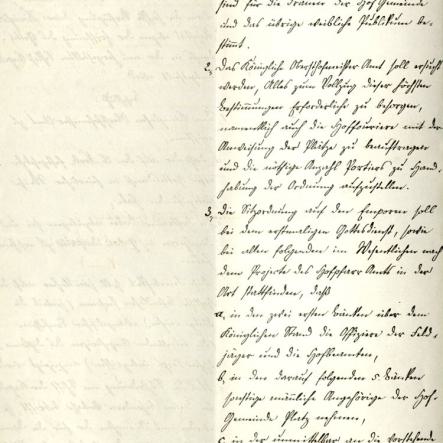 sind für die Frauen der Hof-Gemeinde
und das übrige weibliche Publikum be-
stimmt.
2, Das Königliche Obersthofmeister-Amt soll ersucht
werden, Alles zum Vollzug dieser höchsten
Bestimmungen Erforderliche zu besorgen,
namentlich auch die Hoffouriere mit der
Anweisung der Plätze zu beauftragen
und die nöthige Anzahl Portiers zu Hand-
habung der Ordnung aufzustellen.
3, Die Sitzordnung auf den Emporen soll
bei dem erstmaligen Gottesdienst, sowie
bei allen folgenden im Wesentlichen nach
dem Projecte des Hofpfarr-Amts in der
Art stattfinden, daß
a, in den zwei ersten Bänken über dem
Königlichen Stand die Offiziere der Feld-
jäger und die Hofbeamten,
b, in den darauf folgenden 5 Bänken
sonstige männliche Angehörige der Hof-
Gemeinde Platz nehmen,
c, in der unmittelbar an die vorstehende